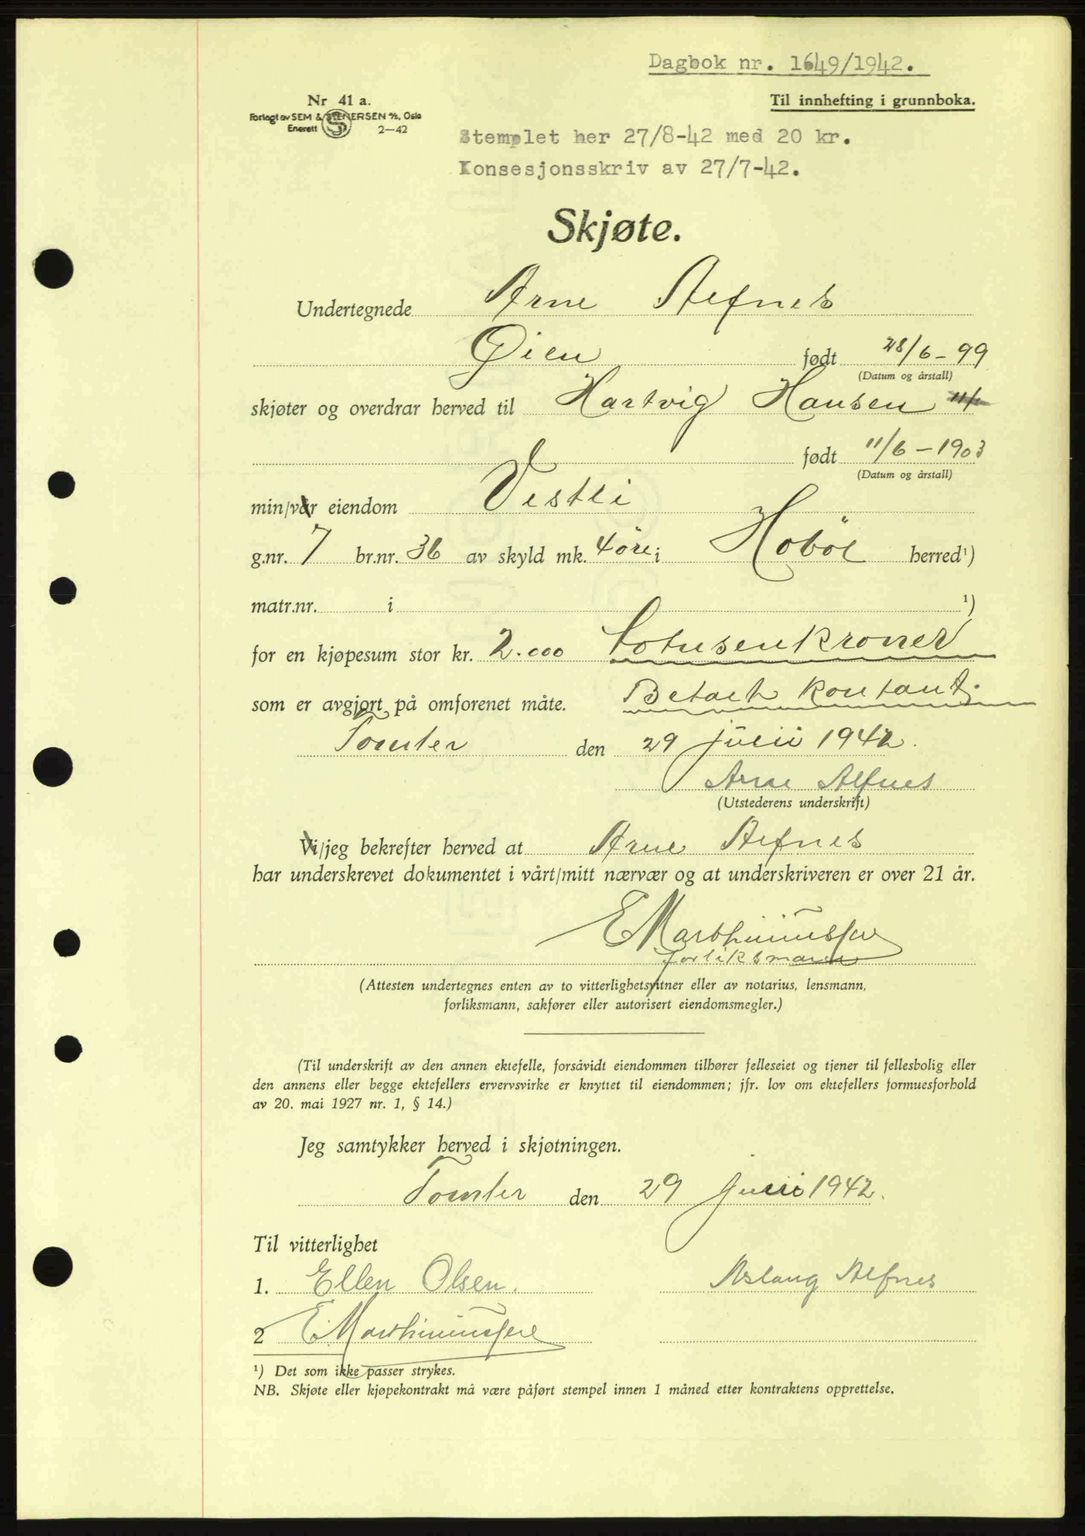 Dagbok nr. 1649/1942.
Til innhefting i grunnboka.
Nr 41 a.
Forlagt av SEM & STENERSEN A/S, Oslo
Enerett 2-42
Stemplet her 27/8-42 med 20 kr.
Konsesjonsskriv av 27/7-42.
Skjøte.
Undertegnede Arne Alfnes
Øien født 28/6-99
(Datum og årstall)
skjøter og overdrar herved til Hartvig Hansen 11/
født 11/6-1903
(Datum og årstall)
min/vår eiendom Vestli
g.nr. 7 br.nr. 36 av skyld mk. 4 øre i Hobøl herred¹)
matr.nr. i ¹)
for en kjøpesum stor kr. 2.000 Totusenkroner
som er avgjort på omforenet måte. Betalt kontant.
Tomter den 29 juli 1942.
Arne Alfnes
(Utstederens underskrift)
Vi/jeg bekrefter herved at Arne Alfnes
har underskrevet dokumentet i vårt/mitt nærvær og at underskriveren er over 21 år.
E Marthiniussen
forliksmann
(Attesten undertegnes enten av to vitterlighetsvitner eller av notarius, lensmann,
forliksmann, sakfører eller autorisert eiendomsmegler.)
(Til underskrift av den annen ektefelle, forsåvidt eiendommen tilhører felleseiet og tjener til fellesbolig eller
den annens eller begge ektefellers ervervsvirke er knyttet til eiendommen; jfr. lov om ektefellers formuesforhold
av 20. mai 1927 nr. 1, § 14.)
Jeg samtykker herved i skjøtningen.
Tomter den 29 juli 1942.
Til vitterlighet
1. Ellen Olsen. Aslaug Alfnes
2 E Marthiniussen
¹) Det som ikke passer strykes.
NB. Skjøte eller kjøpekontrakt må være påført stempel innen 1 måned etter kontraktens opprettelse.